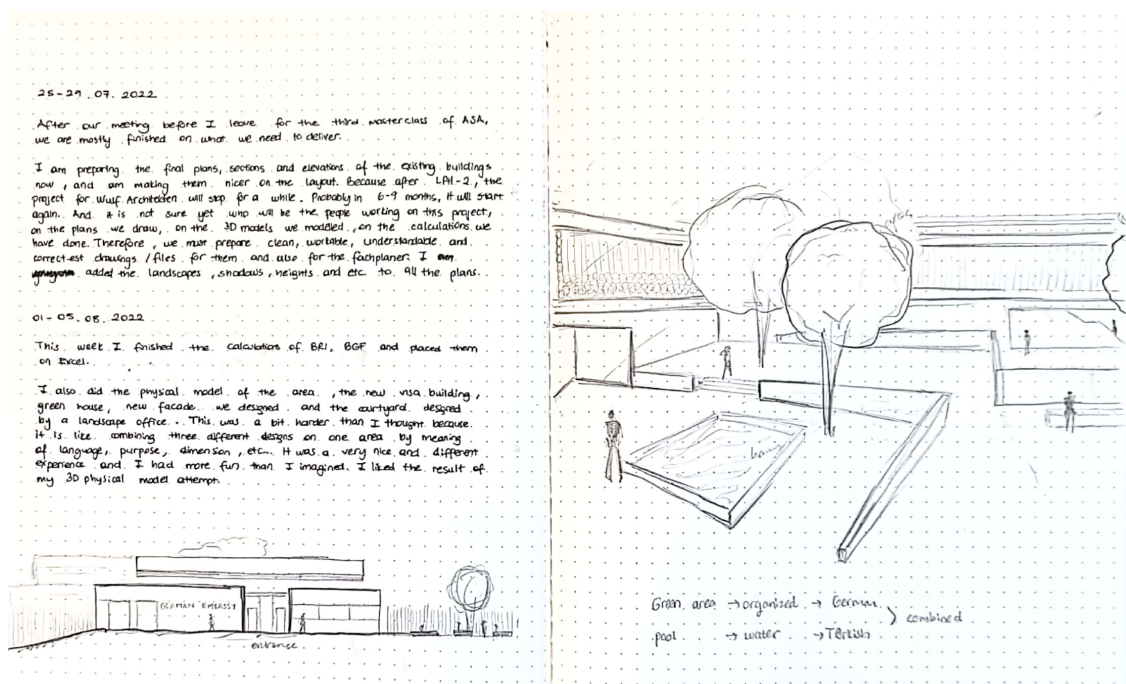 25-29.07.2022
After our meeting before I leave for the third masterclass of ASA,
we are mostly finished on what we need to deliver.
I am preparing the final plans, sections and elevations of the existing buildings
now, and am making them nicer on the layout. Because after LPH-2, the
project for Wulf Architekten will stop for a while. Probably in 6-9 months, it will start
again. And it is not sure yet who will be the people working on this project,
on the plans we draw, on the 3D models we modeled, on the calculations we
have done. Therefore, we must prepare clean, workable, understandable and
correctest drawings / files for them and also for the fachplaner. I
added the landscapes, shadows, heights and etc to all the plans.
01-05.08.2022
This week I finished the calculations of BRI, BGF and placed them
on Excel.
I also did the physical model of the area, the new visa building,
green house, new facade we designed and the courtyard designed
by a landscape office... This was a bit harder than I thought because
it is like combining three different designs on one area by meaning
of language, purpose, dimension, etc... It was a very nice and different
experience and I had more fun than I imagined. I liked the result of
my 3D physical model attempt.
GERMAN EMBASSY
entrance
Green area → organized → German
pool → water → Türkish
} combined